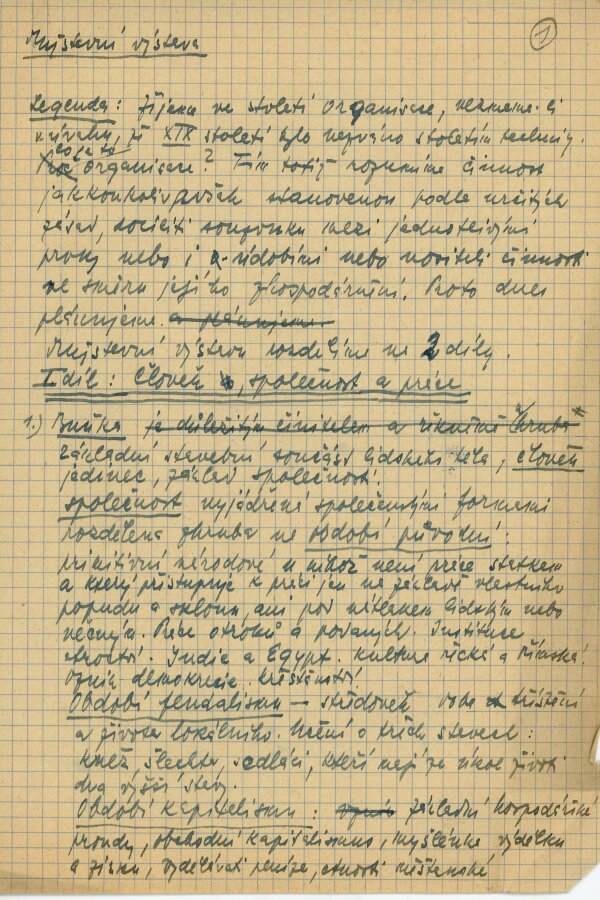 1
Mistevní výstava
Legenda: žijeme ve století organisace, vezmeme-li
v úvahu, že XIX století bylo nazváno stoletím techniky.
co je to
Proč organisace? Tím totiž rozumíme činnost
jakkonkoliv však stanovenou podle určitých
zásad, docíliti souzvuku mezi jednotlivými
prvky nebo i údobími nebo nositeli činnosti
ve směru jejího zhospodárnění. Proto dnes
plánujeme. a plánujeme
výstavu rozdělíme na 2 díly.
I díl: Člověk, společnost a práce
1.) Buňka je důležitým činitelem a zhruba
základní stavební součást lidského těla, člověk
jedinec, základ společnosti.
společnost vyjádření společenskými formami
rozdělena zhruba na období původní:
primitivní národové u nichž není práce statkem
a který přistupuje k práci jen na základě vlastního
popudu a sklonu, ani pod nátlakem lidským nebo
věcným. Práce otroků a poddaných. Instituce
otroctví. Indie a Egypt. Kultura řecká a římská!
Vznik demokracie. Křesťanství
Období feudalismu – středověk doba tříštění
a života lokálního. Učení o třech stavech:
kněz, šlechta, sedláci, kteří mají za úkol živiti
dva vyšší stavy.
Období kapitalismu: vznik základní hospodářské
proudy, obchodní kapitalismus, myšlénka výdělku
a zisku, vydělávati peníze, ctnosti měšťanské